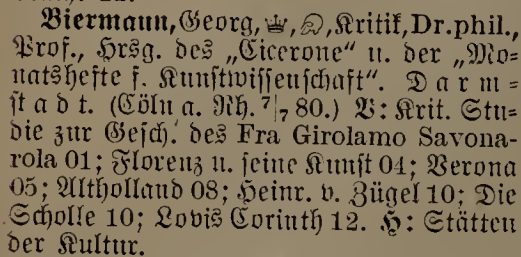 Biermann, Georg, ♕, Kritik, Dr. phil.,
Prof., Hrsg. des „Cicerone“ u. der „Mo=
natshefte f. Kunstwissenschaft“. Darm=
stadt. (Cöln a. Rh. 7/7 80.) V: Krit. Stu=
die zur Gesch. des Fra Girolamo Savona-
rola 01; Florenz u. seine Kunst 04; Verona
05; Altholland 08; Heinr. v. Zügel 10; Die
Scholle 10; Lovis Corinth 12. H: Stätten
der Kultur.